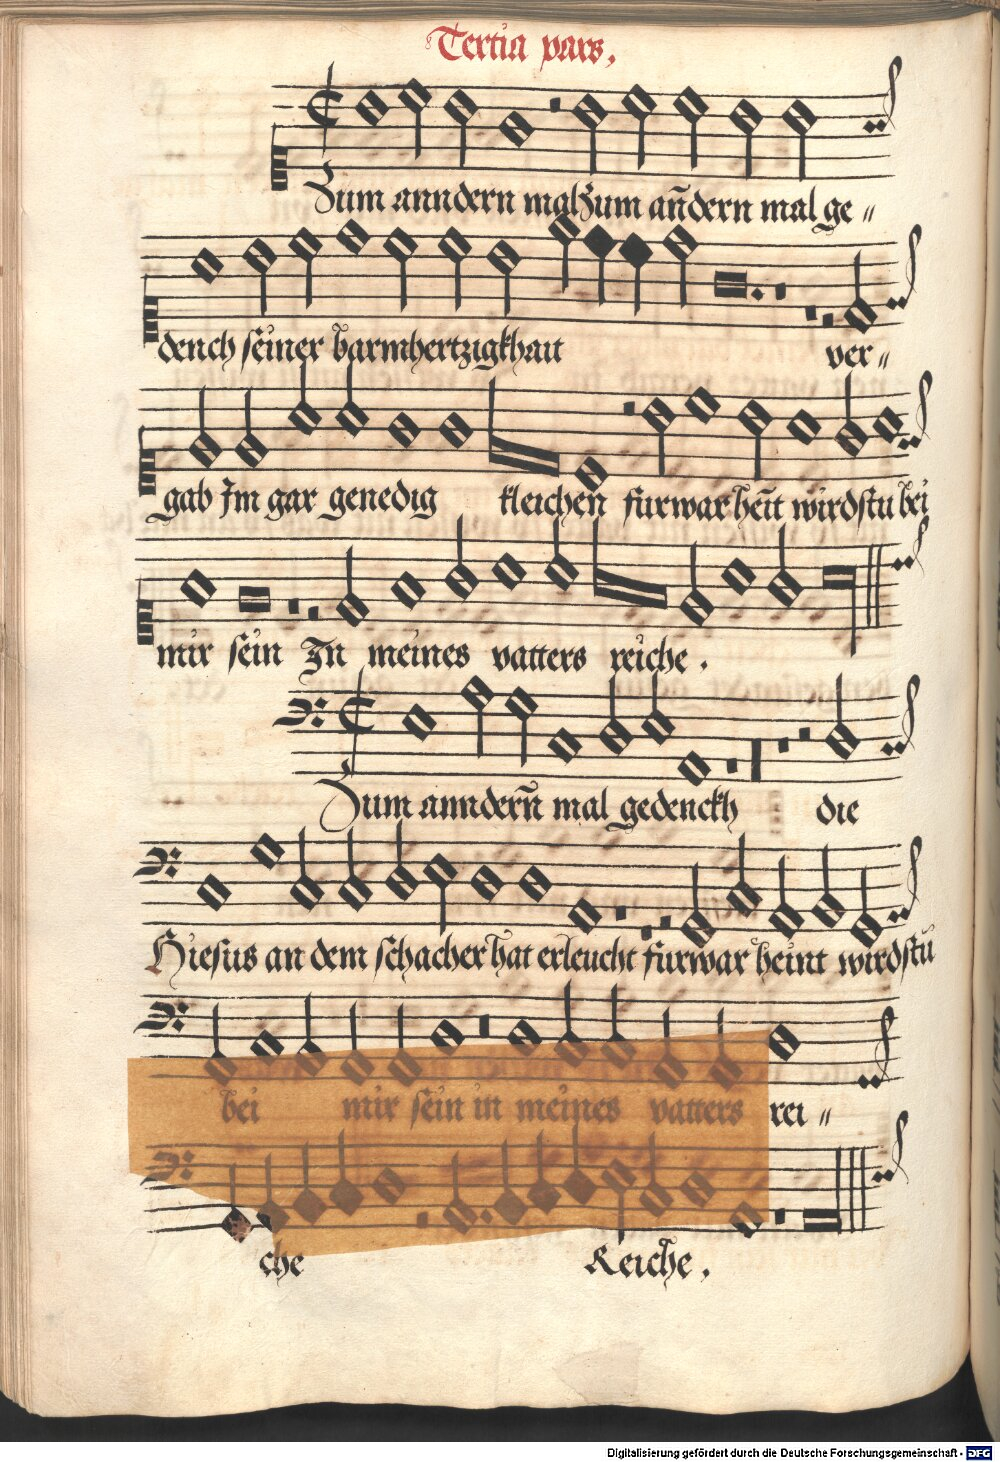 Tertia pars.
Zum anndern mal Zum añdern mal ge〃
dench seiner barmhertzigkhait ver〃
gab Im gar genedig kleichen furwar heut wirdstu bei
mir sein In meines vatters reiche.
Zum annderñ mal gedenckh die
Hiesus an dem schacher hat erleucht furwar heint wirdstu
bei mir sein in meines vatters rei〃
che Reiche.
Digitalisierung gefördert durch die Deutsche Forschungsgemeinschaft - DFG